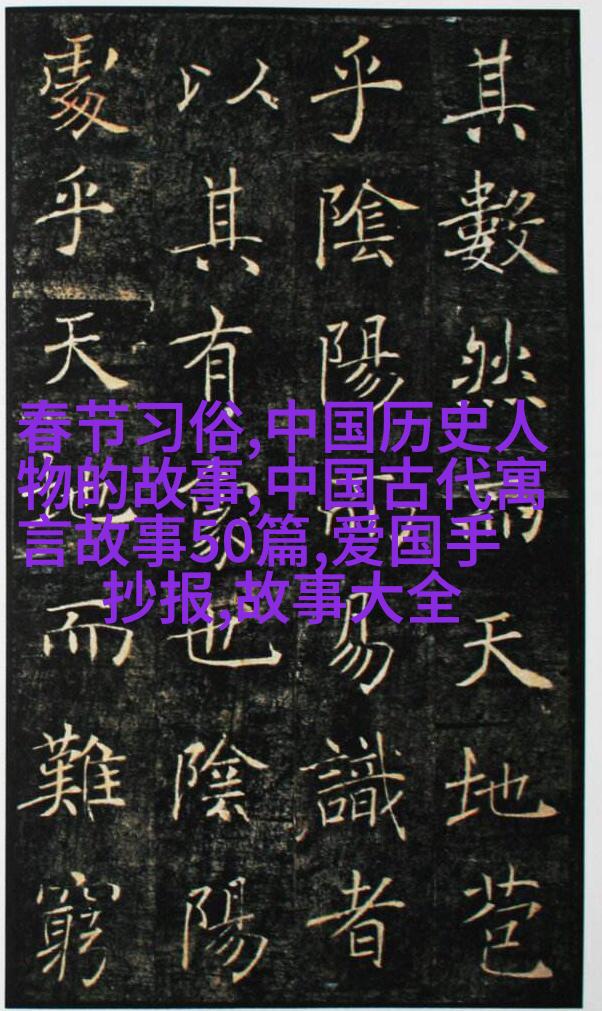 其數然而天地苞
乎陰陽而易識者
以其有象也陰陽
處乎天地而難窮
春节习俗,中国历史人
物的故事,中国古代寓
言故事50篇,爱国手
抄报,故事大全